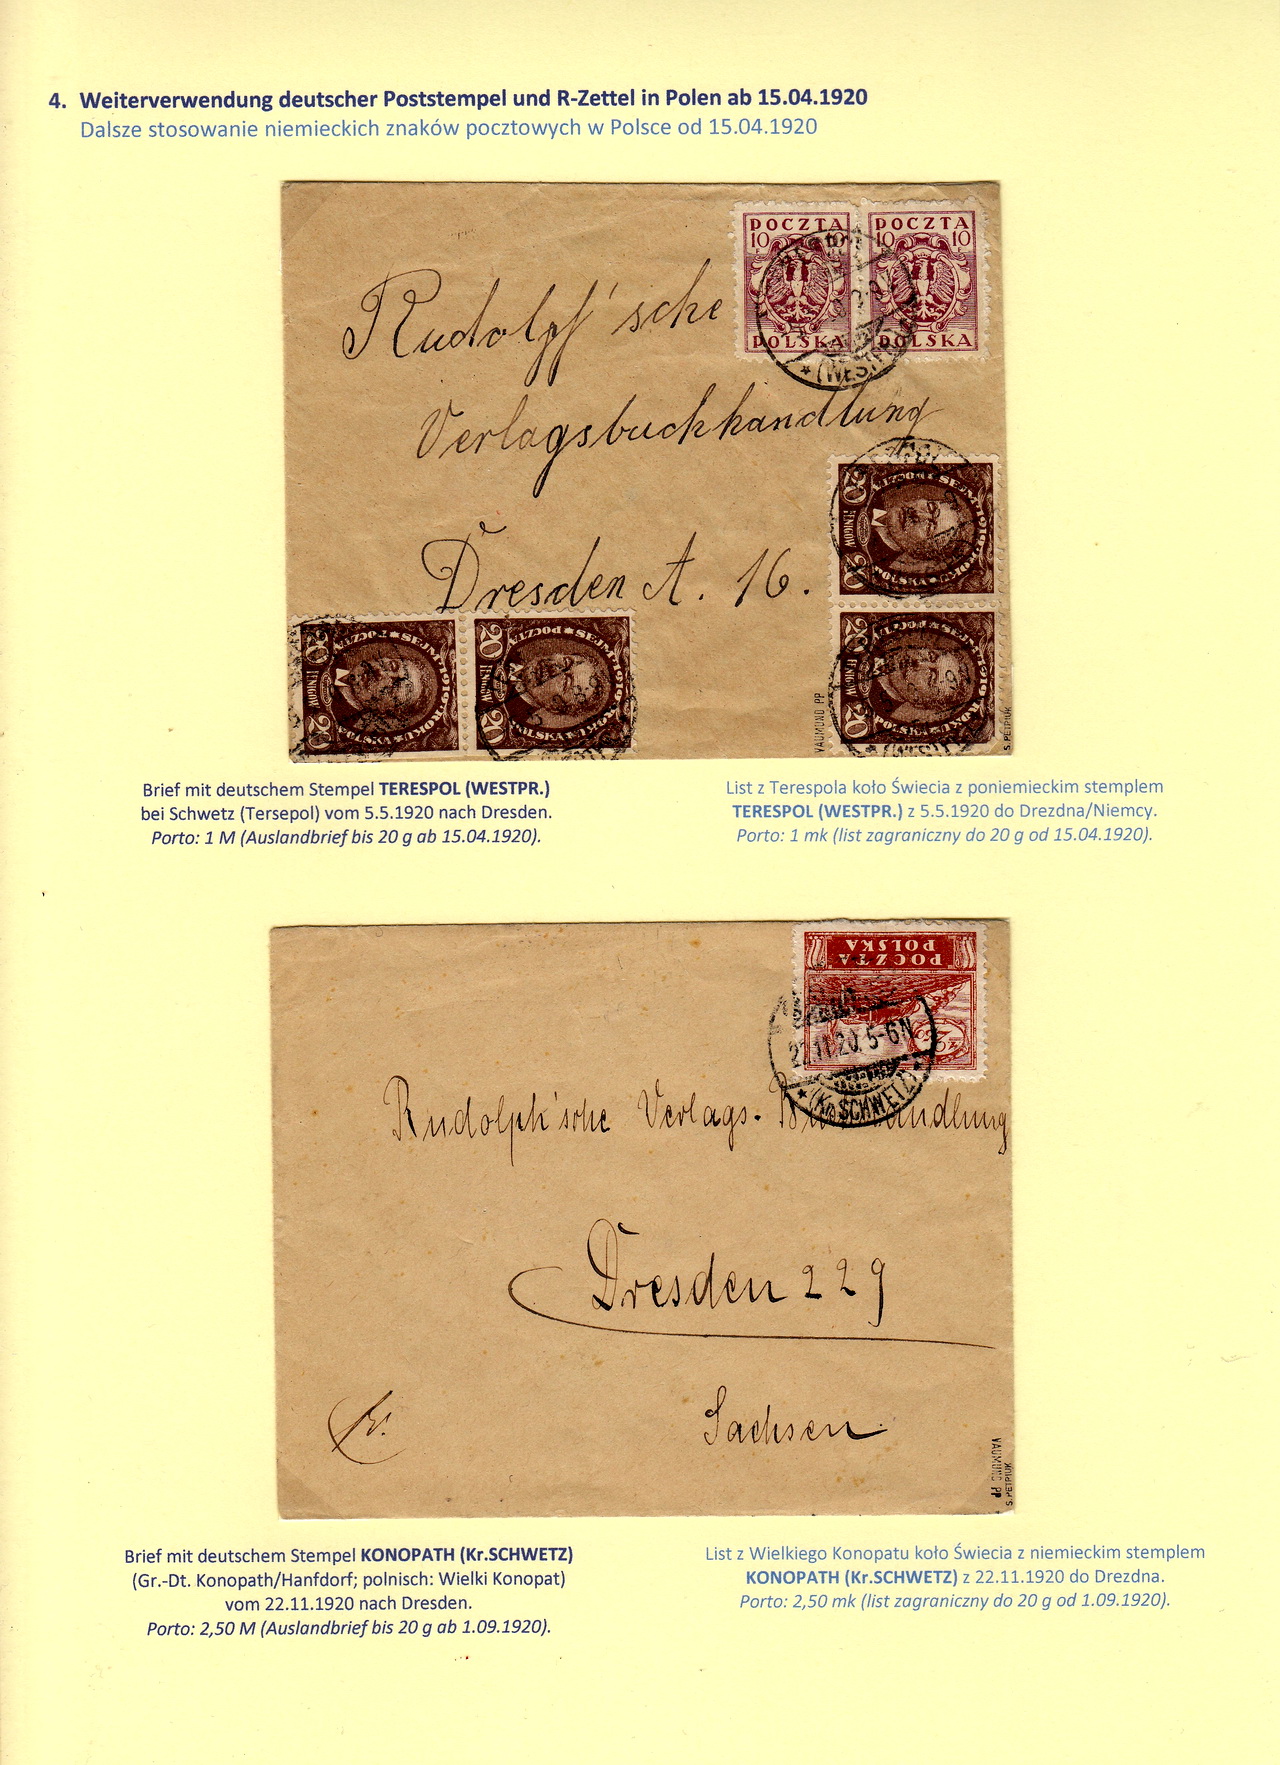 4. Weiterverwendung deutscher Poststempel und R-Zettel in Polen ab 15.04.1920
Dalsze stosowanie niemieckich znaków pocztowych w Polsce od 15.04.1920
POCZTA POCZTA
10 10 10 10
POLSKA POLSKA
(WESTPR.)
Rudolpf'sche
Verlagsbuchhandlung
Dresden A. 16.
20 FENIGÓW 20
POCZTA POLSKA SEJM 1919 ROKU
20 FENIGÓW 20
20 FENIGÓW 20
20 FENIGÓW 20
VAUMUND PP
S. PETRIUK
Brief mit deutschem Stempel TERESPOL (WESTPR.)
bei Schwetz (Tersepol) vom 5.5.1920 nach Dresden.
Porto: 1 M (Auslandbrief bis 20 g ab 15.04.1920).
List z Terespola koło Świecia z poniemieckim stemplem
TERESPOL (WESTPR.) z 5.5.1920 do Drezdna/Niemcy.
Porto: 1 mk (list zagraniczny do 20 g od 15.04.1920).
POCZTA
POLSKA
22.11.20. 5-6N
(Kr.SCHWETZ)
Rudolph'sche Verlags-Buchhandlung
Dresden 229
Sachsen
VAUMUND PP
S. PETRIUK
Brief mit deutschem Stempel KONOPATH (Kr.SCHWETZ)
(Gr.-Dt. Konopath/Hanfdorf; polnisch: Wielki Konopat)
vom 22.11.1920 nach Dresden.
Porto: 2,50 M (Auslandbrief bis 20 g ab 1.09.1920).
List z Wielkiego Konopatu koło Świecia z niemieckim stemplem
KONOPATH (Kr.SCHWETZ) z 22.11.1920 do Drezdna.
Porto: 2,50 mk (list zagraniczny do 20 g od 1.09.1920).